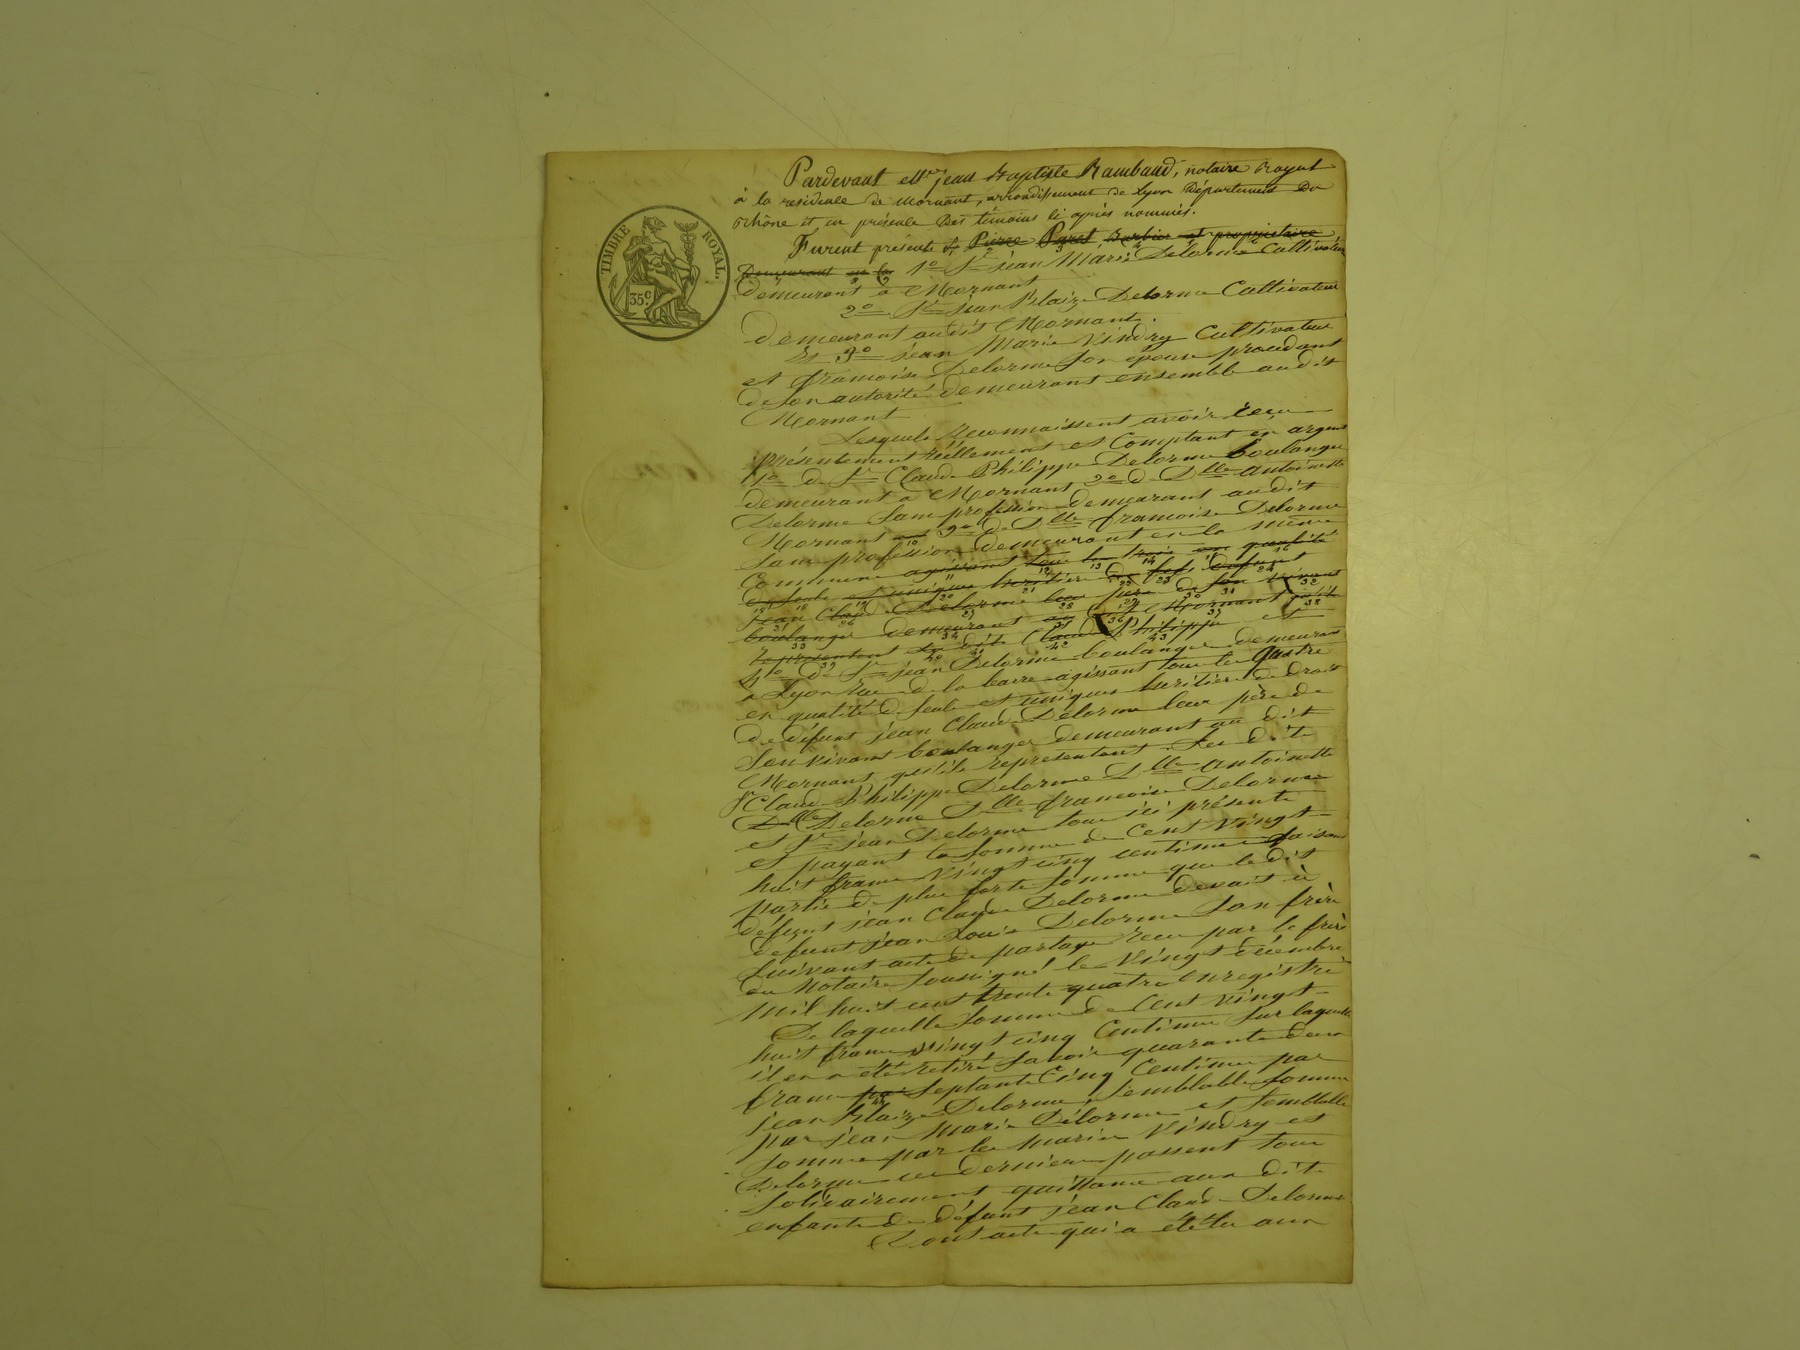 TIMBRE ROYAL.
35c.
Pardevant Mtre jean Baptiste Rambaud, notaire Royal
à la residence de Mornant, arrondissement de Lyon Département Du
Rhône et en présence Des témoins ci après nommés.
Furent présents Sr Pierre Paret, Barbier et propriétaire
Demeurant en la 1o Sr jean Marie Delorme Cultivateur
demeurant a Mornant
2o Sr jean Blaize Delorme Cultivateur
demeurant audit Mornant.
Et 3o jean Marie Vindry Cultivateur
et francoise Delorme son épouse procedant
de son autorité demeurant ensemble audit
Mornant
Lesquels reconnaissent avoir reçu
présentement réellement et Comptant en argent
1o de Sr Claude Philippe Delorme boulanger
demeurant a Mornant 2o de Dlle antoinette
Delorme sans profession demeurant audit
Mornant et 3o de Dlle francoise Delorme
sans profession demeurant en la même
Commune agissant tous les trois en qualité
de seuls et uniques héritiers de feu Defunt
jean Claude Delorme leur père de son vivant
boulanger demeurant au dit Mornant qu'ils
représentent Le dit Claude Philippe et
4o de Sr jean Delorme boulanger demeurant
a Lyon rue de la barre agissant tous les quatre
en qualité de seuls et uniques héritiers de droit
de défunt jean Claude Delorme leur père de
son vivant boulanger demeurant au dit
Mornant qu'ils représentent. Les dits
Sr Claude Philippe Delorme Dlle antoinette
Dlle Delorme Dlle francoise Delorme
et Sr jean Delorme tous ici présents
et payant la somme de Cent Vingt
huit francs Vingt cinq centimes faisant
partie de plus forte somme que le dit
défunt jean Claude Delorme devait à
defunt jean Louis Delorme son frère
suivant acte de partage recu par le frère
du Notaire soussigné le Vingt décembre
mil huit cent trente quatre enregistré
De laquelle somme de Cent Vingt
huit francs Vingt cinq Centimes sur laquelle
il en a été retiré savoir quarante deux
francs septante Cinq Centimes par
jean Blaize Delorme, semblable somme
par jean Marie Delorme et semblable
somme par les mariés Vindry et
Delorme ces derniers passent tous
solidairement quittance aux dits
enfants de défunt jean Claude Delorme
Dont acte qui a été lu aux